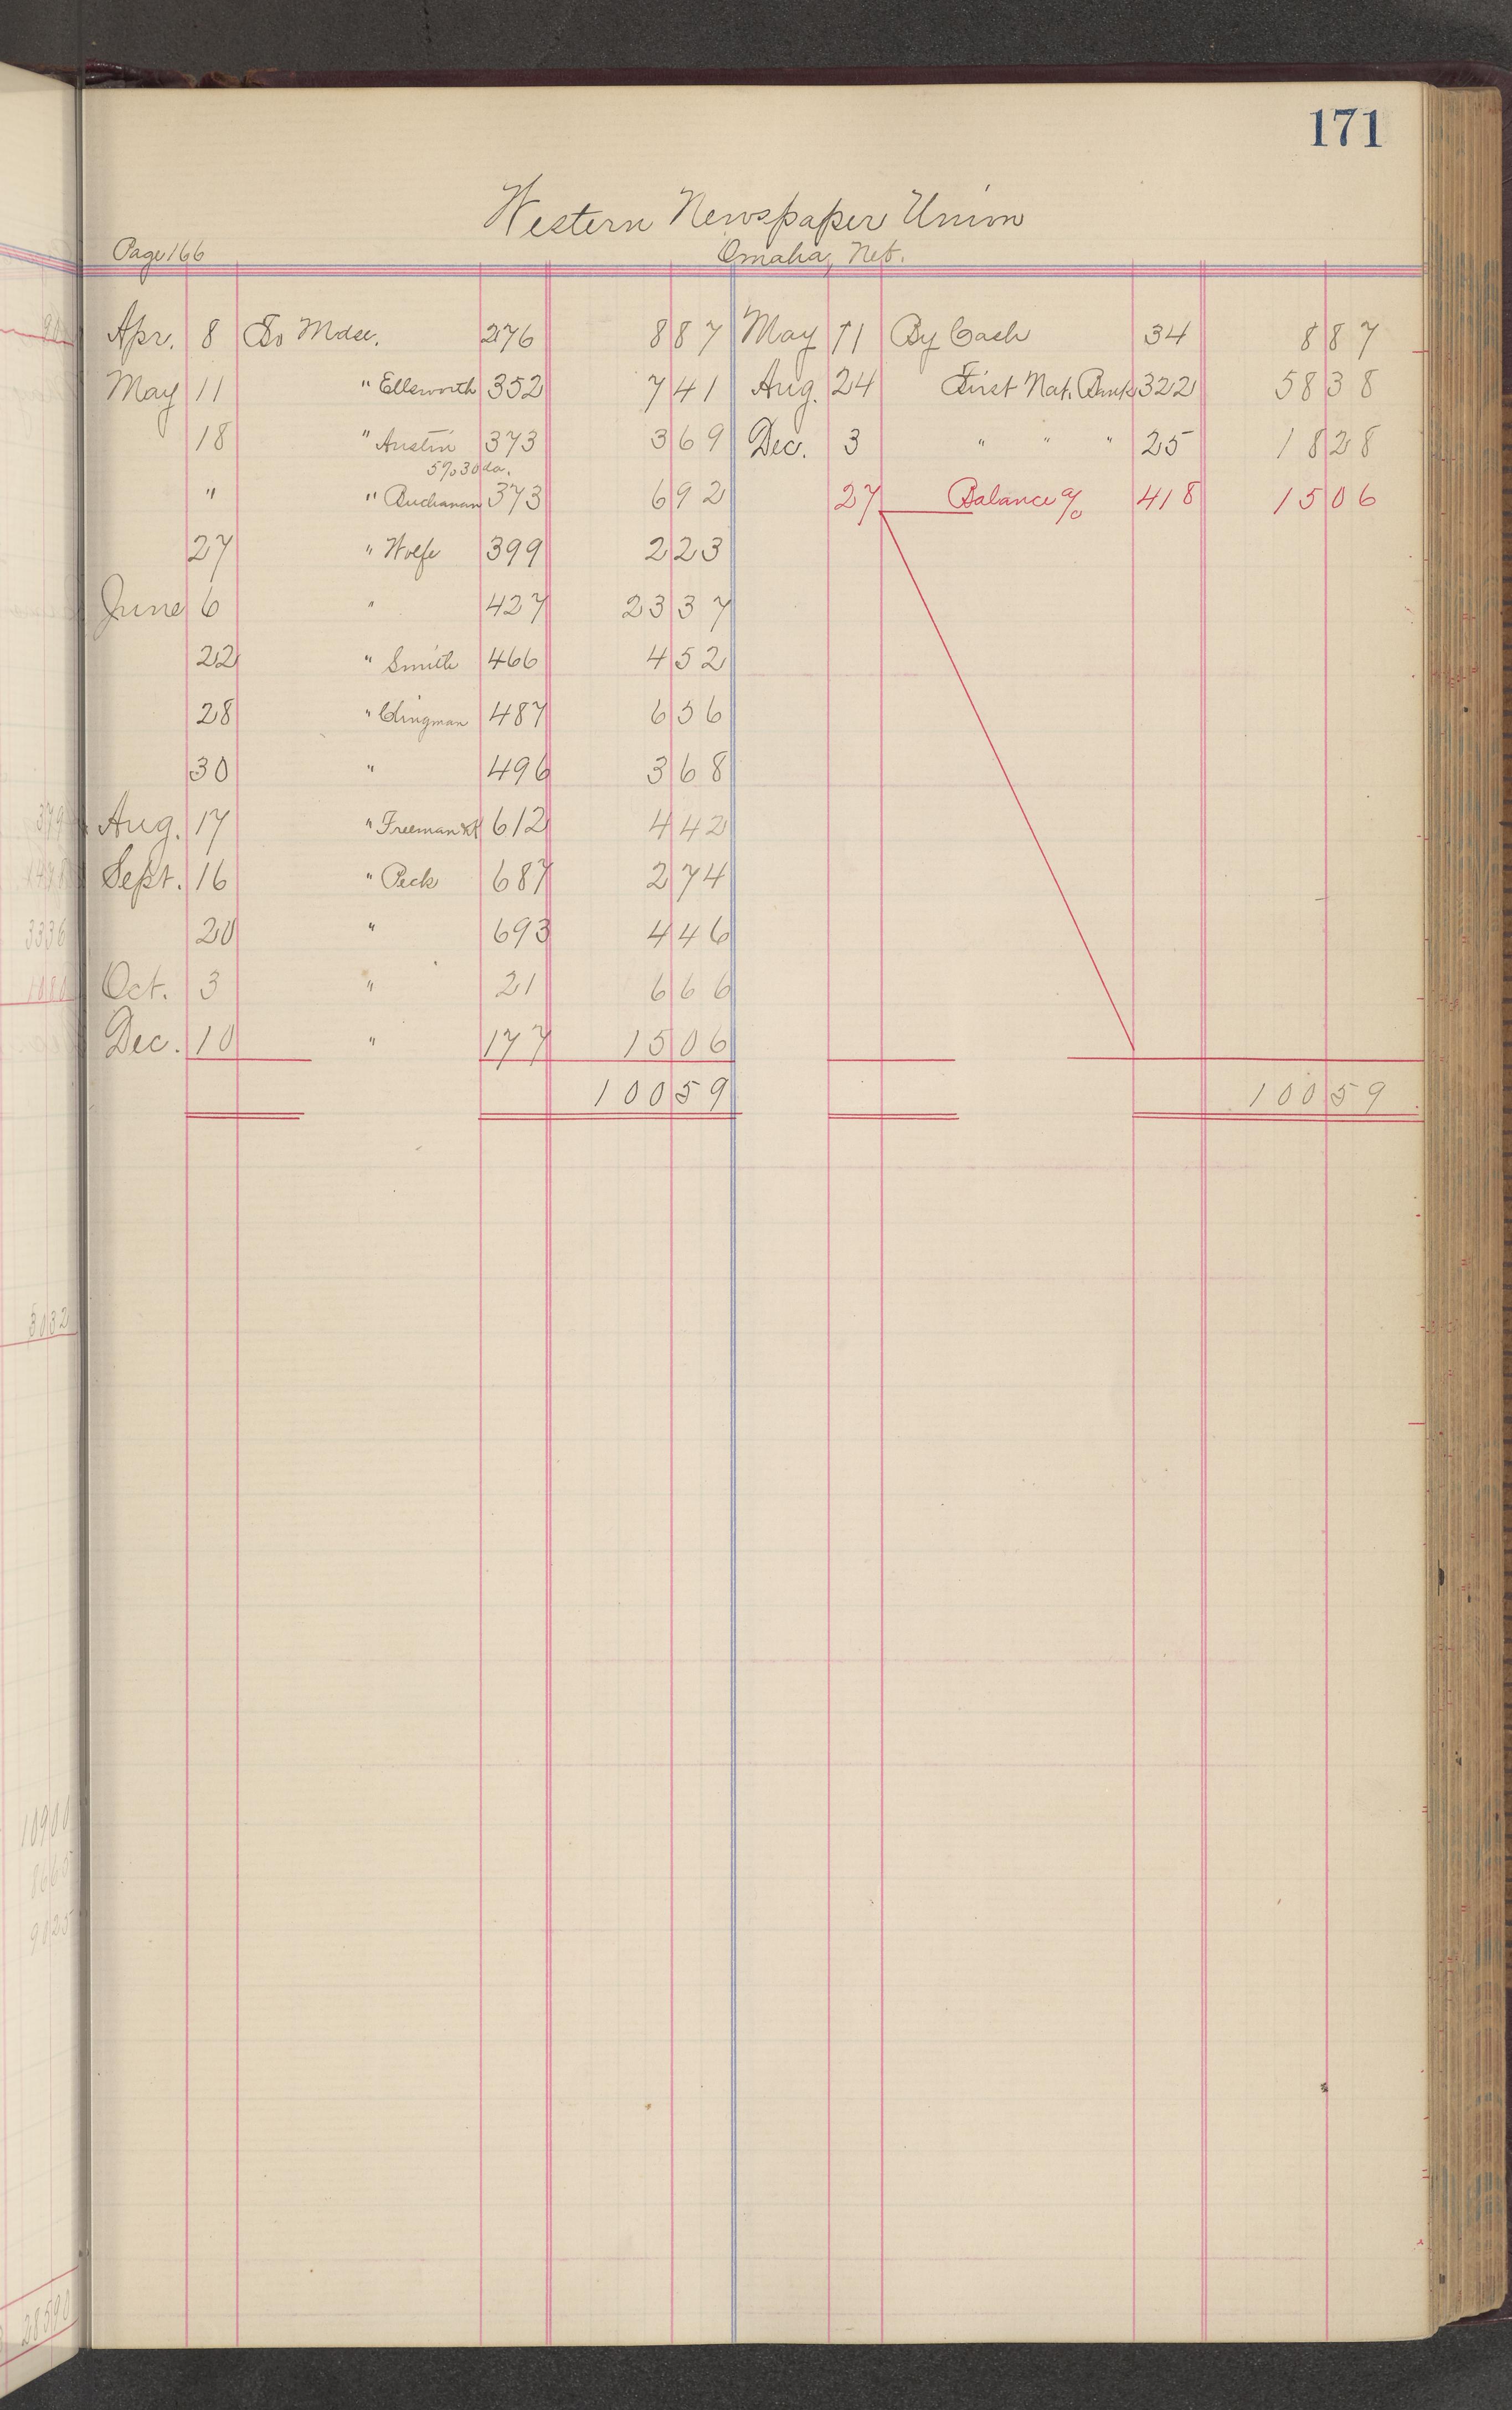 171
Western Newspaper Union
Page 166 Omaha, Neb.
Apr. 8 To Mdse. 276 8 87 May 11 By Cash 34 8 87
May 11 " Ellsworth 352 7 41 Aug. 24 First Nat. Bank 322 58 38
18 " Austin 373 3 69 Dec. 3 " " " 25 18 28
5% 30 da.
" " Buchanan 373 6 92 27 Balance a/c 418 15 06
27 " Wolfe 399 2 23
June 6 " 427 23 37
22 " Smith 466 4 52
28 " Clingman 487 6 56
30 " 496 3 68
Aug. 17 " Freeman 612 4 42
Sept. 16 " Peck 687 2 74
20 " 693 4 46
Oct. 3 " 21 6 66
Dec. 10 " 177 15 06
100 59 100 59